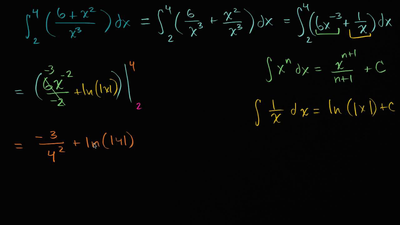 ∫₂⁴ ((6+x²)/x³) dx = ∫₂⁴ (6/x³ + x²/x³) dx = ∫₂⁴ (6x⁻³ + 1/x) dx
= (-3 6x⁻²/-2 + ln(|x|)) |₂⁴
∫ xⁿ dx = xⁿ⁺¹/(n+1) + C
∫ 1/x dx = ln(|x|) + C
= -3/4² + ln(|4|)